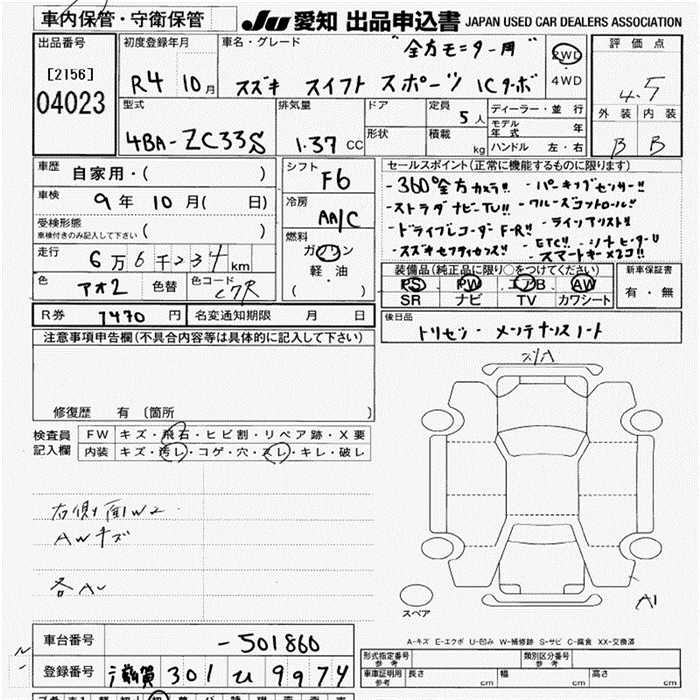 車内保管・守衛保管
JU 愛知 出品申込書 JAPAN USED CAR DEALERS ASSOCIATION
出品番号
[2156]
04023
初度登録年月
R4 10月
車名・グレード
"全方モニター用"
スズキ スイフト スポーツ ICターボ
2WD
4WD
評価点
4.5
外装 内装
B B
型式
4BA-ZC33S
排気量
1.37 CC
ドア
形状
定員
5人
積載
kg
ディーラー・並行
モデル年式 年
ハンドル 左・右
車歴
自家用・( )
車検
9年 10月( 日)
受検形態
車検付きのみ記入して下さい ( )
走行
6万6千234km
色
アオ2
色替
色コード
C7R
シフト
F6
冷房
AA/C
燃料
ガソリン
軽・油
( )
セールスポイント(正常に機能するものに限ります)
-360°全方カメラ!! -パーキングセンサー!!
-ストラダナビTV!! -クルーズコントロール!!
-ドライブレコーダF-R!! -ラインアシスト!!
-スズキセフティセンス!! ETC!! -シートヒーター!!
-スマートキー×2コ!!
装備品(純正品に限り○をつけてください)
PS PW エアB AW
SR ナビ TV カワシート
新車保証書
有・無
R券 7470円
名変通知期限 月 日
後日品
トリセツ・メンテナンスノート
注意事項申告欄(不具合内容等は具体的に記入して下さい)
修復歴 有 〔箇所 〕
検査員
記入欄
FW キズ・飛石・ヒビ割・リペア跡・X要
内装 キズ・汚レ・コゲ・穴・スレ・キレ・破レ
右側面W2
AWキズ
各AU
A1
スペア
A-キズ E-エクボ U-凹み W-補修跡 S-サビ C-腐食 XX-交換済
車台番号
-501860
登録番号
滋賀 301 ひ 9974
形式指定番号
参考
類別区分番号
参考
車庫証明用
参考
長さ cm 幅 cm 高さ cm